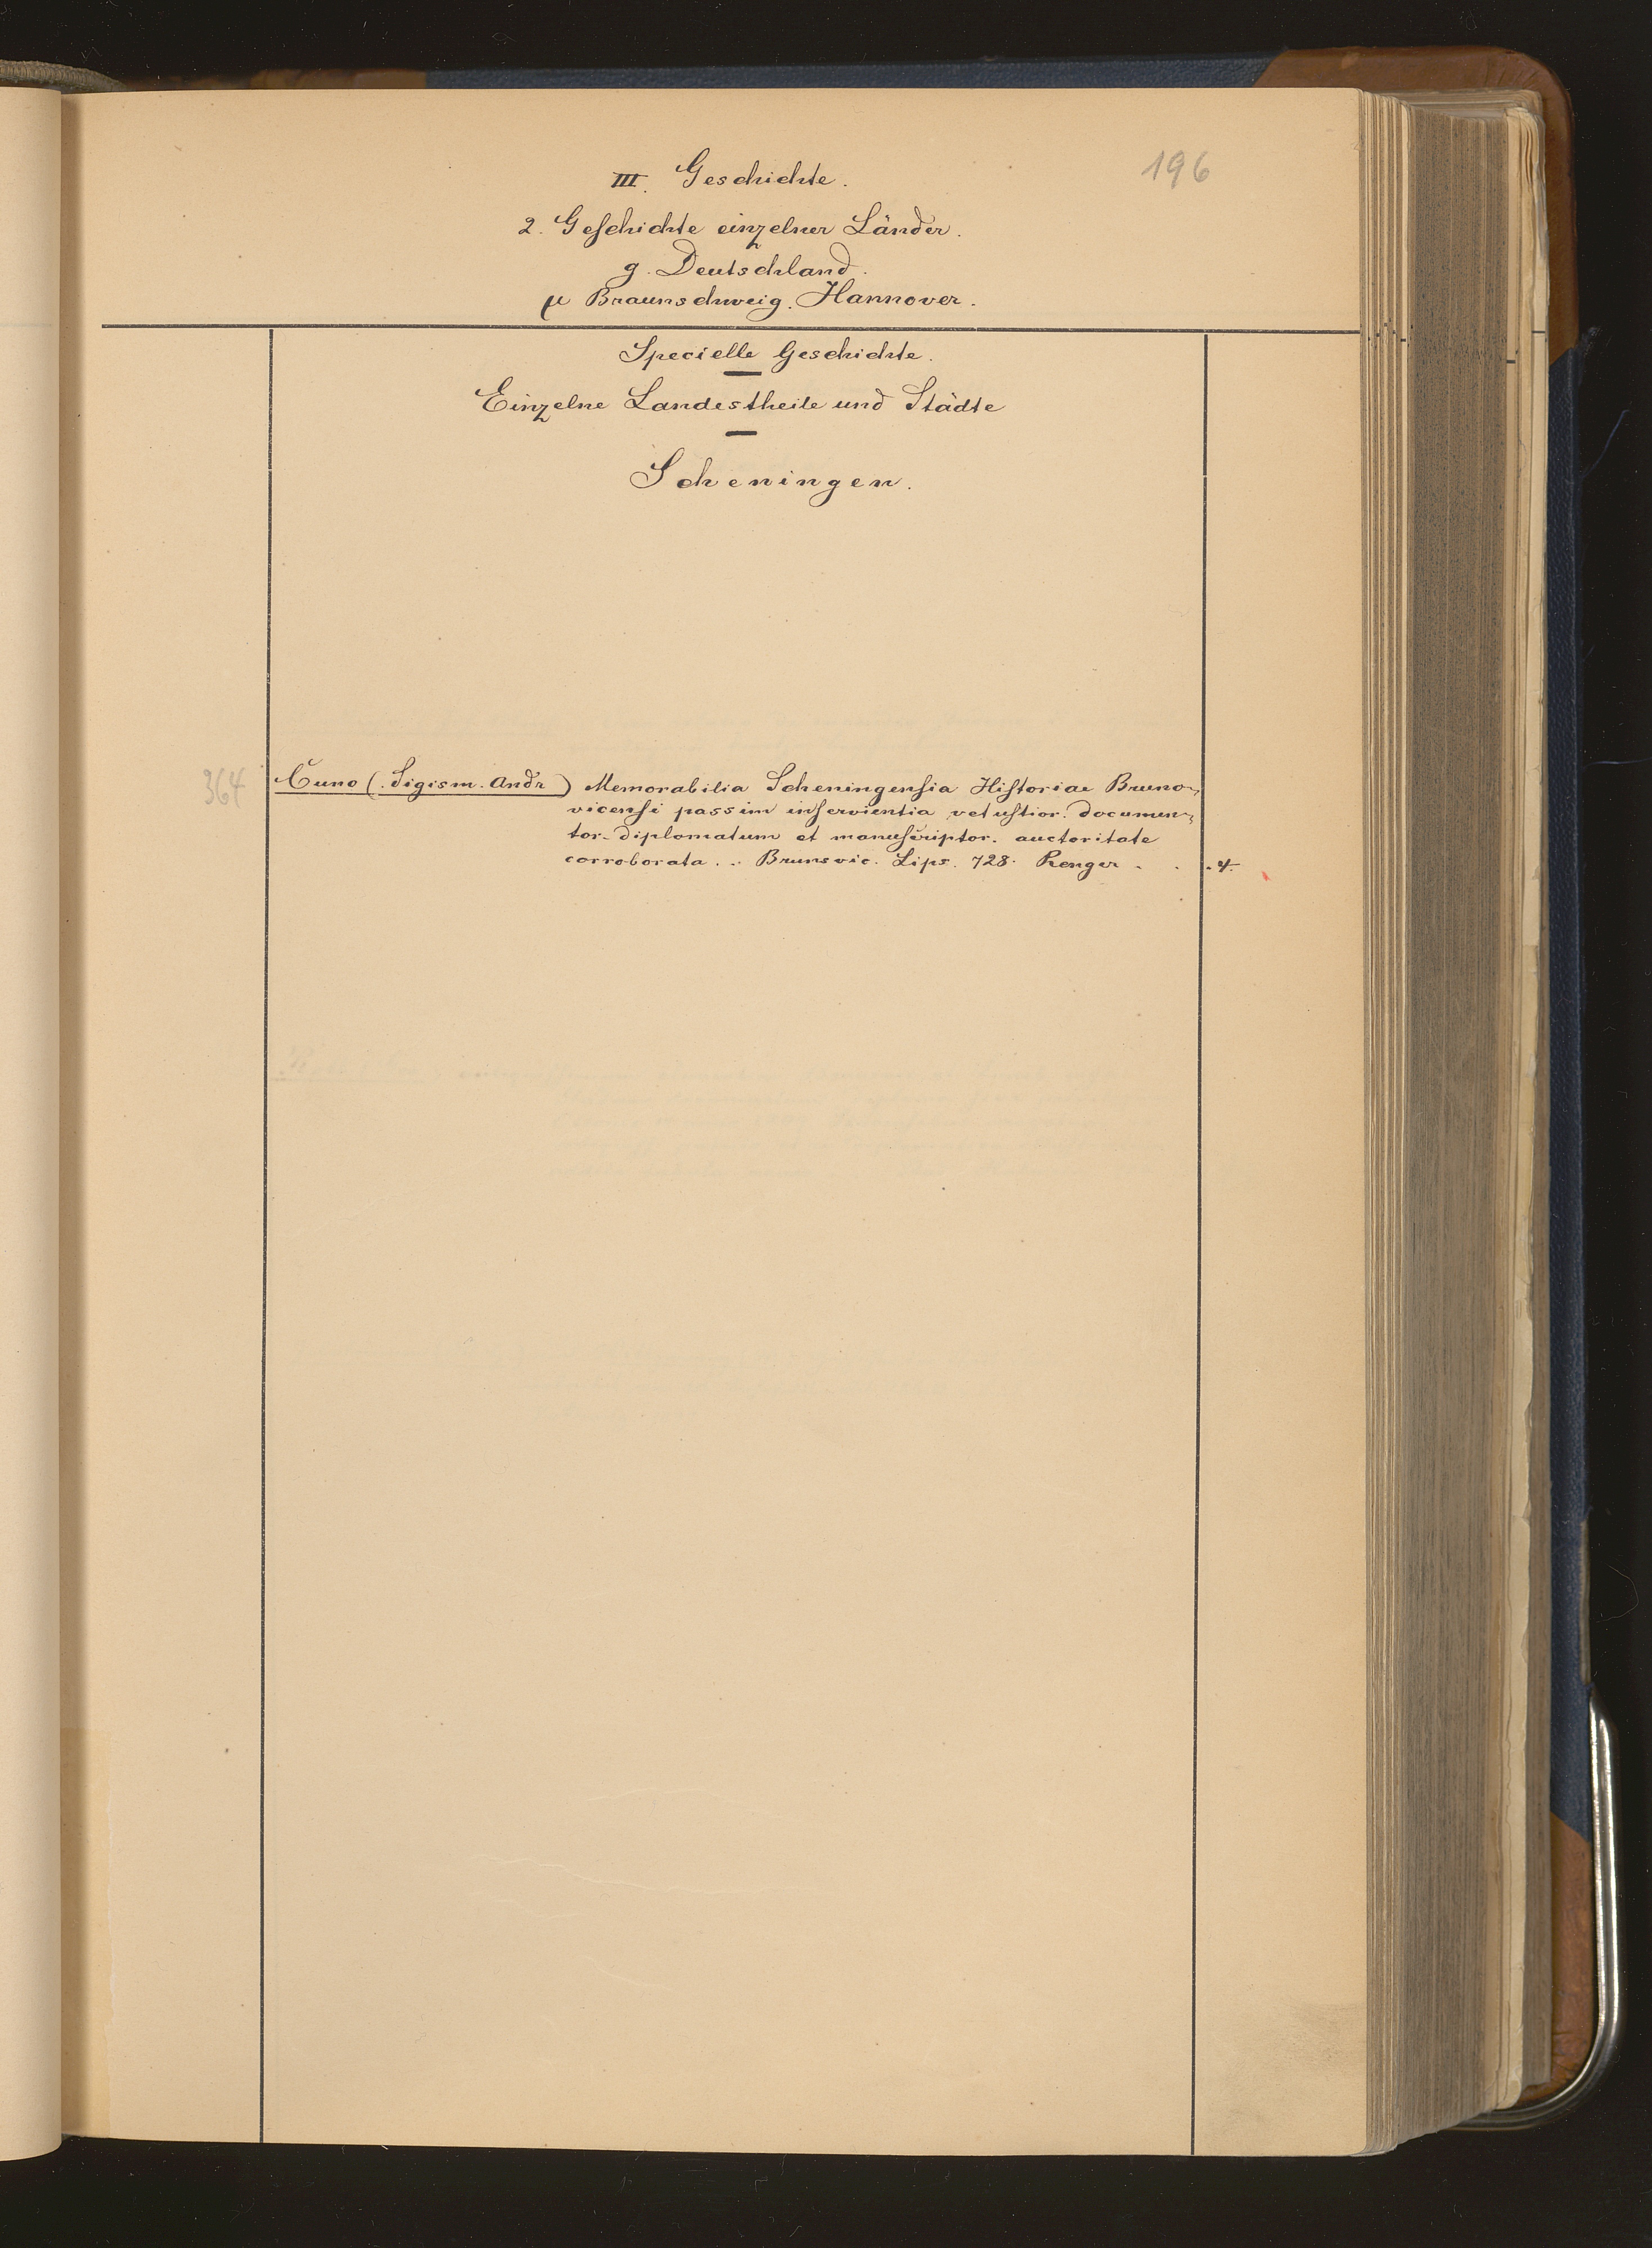 196
III. Geschichte.
2. Geschichte einzelner Länder.
g. Deutschland.
μ Braunschweig. Hannover.
Specielle Geschichte.
Einzelne Landestheile und Städte
Scheningen.
364 Cuno (Sigism. Andr) Memorabilia Scheningensia Historiae Bruno-
vicensi passim inservientia vetustior. documen-
tor. diplomatum et manuscriptor. auctoritate
corroborata. .. Brunsvic. Lips. 728. Renger . . . 4.